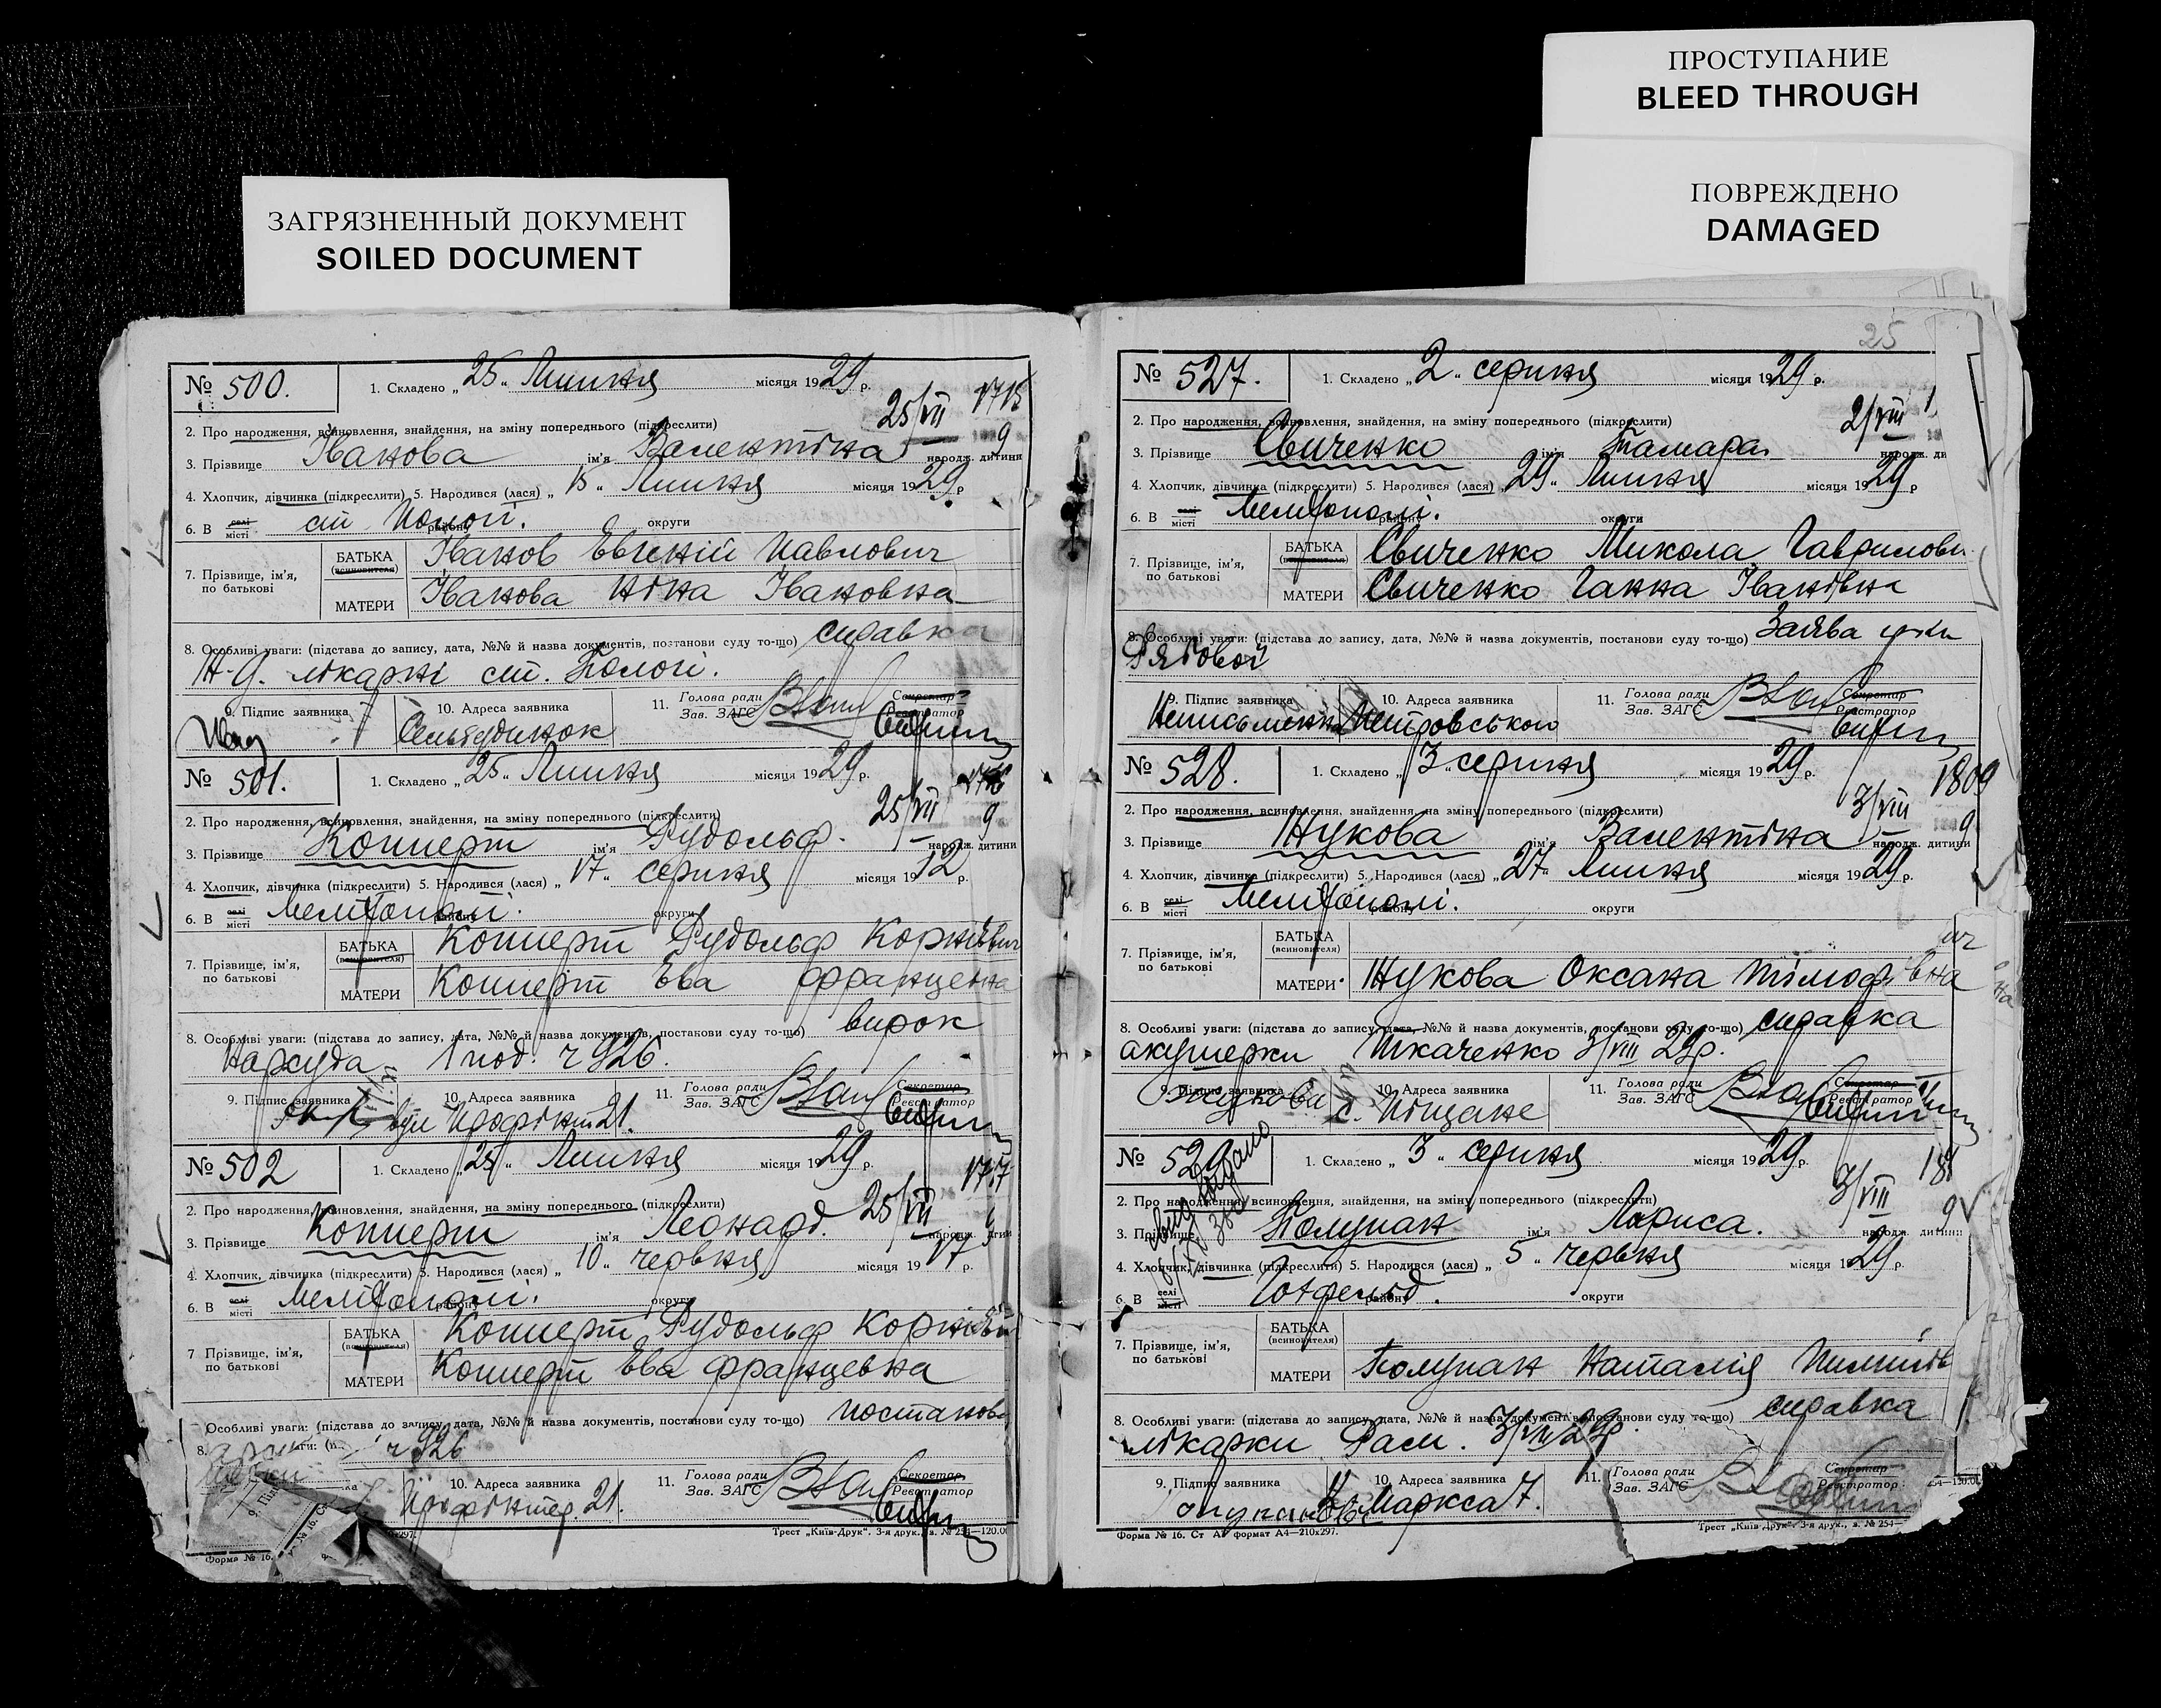 ПРОСТУПАНИЕ
BLEED THROUGH
ПОВРЕЖДЕНО
DAMAGED
ЗАГРЯЗНЕННЫЙ ДОКУМЕНТ
SOILED DOCUMENT
№ 500. 1. Складено „25“ Липня місяця 1929 р.
25/VII
2. Про народження, всиновлення, знайдення, на зміну попереднього (підкреслити) 9
3. Прізвище Іванова ім'я Валентіна народж. дитини
4. Хлопчик, дівчинка (підкреслити) 5. Народився (лася) „15“ Липня місяця 1929 р
6. В селі місті району округи
7. Прізвище, ім'я, по батькові
БАТЬКА (всиновителя) Іванов Евгеній Павлович
МАТЕРИ Іванова Ніна Івановна
8. Особливі уваги: (підстава до запису, дата, №№ й назва документів, постанови суду то-що) справка
лікарні ст. Пологі.
9. Підпис заявника 10. Адреса заявника 11. Голова ради Секретар
Зав. ЗАГС Реєстратор
№ 501. 1. Складено „25“ Липня місяця 1929 р.
25/VII
2. Про народження, всиновлення, знайдення, на зміну попереднього (підкреслити) 9
3. Прізвище Копперт ім'я Рудольф. народж. дитини
4. Хлопчик, дівчинка (підкреслити) 5. Народився (лася) „17“ серпня місяця 1912 р.
6. В селі місті Мелітополі. району округи
7. Прізвище, ім'я, по батькові
БАТЬКА (всиновителя) Копперт Рудольф
МАТЕРИ Копперт Ева Францевна
8. Особливі уваги: (підстава до запису, дата, №№ й назва документів, постанови суду то-що) вирок
Нарсуда ч 926.
9. Підпис заявника 10. Адреса заявника 11. Голова ради Секретар
Зав. ЗАГС Реєстратор
вул Профінт 21.
№ 502 1. Складено „25“ Липня місяця 1929 р.
1717
25/VII
2. Про народження, всиновлення, знайдення, на зміну попереднього (підкреслити)
3. Прізвище Копперт ім'я Леонард. народж.
4. Хлопчик, дівчинка (підкреслити) 5. Народився (лася) „10“ червня місяця 1917 р.
6. В селі місті Мелітополі. району округи
7 Прізвище, ім'я, по батькові
БАТЬКА (всиновителя) Копперт Рудольф
МАТЕРИ Копперт Ева Францевна
8. Особливі уваги: (підстава до запису, дата, №№ й назва документів, постанови суду то-що) постанов
ч 926
10. Адреса заявника 11. Голова ради Секретар
Зав. ЗАГС Реєстратор
Профінтер. 21.
Форма № 16. Трест „Київ-Друк“. 3-я друк., з. № 254—120.00
25
№ 527. 1. Складено „2“ серпня місяця 1929 р.
2/VIII
2. Про народження, всиновлення, знайдення, на зміну попереднього (підкреслити)
3. Прізвище Свиченко ім'я Тамара. народж. ди
4. Хлопчик, дівчинка (підкреслити) 5. Народився (лася) „29“ Липня місяця 1929 р
6. В селі місті Мелітополі. району округи
7. Прізвище, ім'я, по батькові
БАТЬКА (всиновителя) Свиченко Микола Гаврилови
МАТЕРИ Свиченко Ганна Іванівна
8. Особливі уваги: (підстава до запису, дата, №№ й назва документів, постанови суду то-що) Заява
9. Підпис заявника 10. Адреса заявника 11. Голова ради Секретар
Зав. ЗАГС Реєстратор
№ 528. 1. Складено „3“ серпня місяця 1929 р.
1809
3/VIII
2. Про народження, всиновлення, знайдення, на зміну попереднього (підкреслити) 9
3. Прізвище Жукова ім'я Валентіна народж. дитини
4. Хлопчик, дівчинка (підкреслити) 5. Народився (лася) „27“ Липня місяця 1929 р.
6. В селі місті Мелітополі. району округи
7. Прізвище, ім'я, по батькові
БАТЬКА (всиновителя)
МАТЕРИ Жукова Оксана
8. Особливі уваги: (підстава до запису, дата, №№ й назва документів, постанови суду то-що) справка
акушерки Ткаченко 3/VIII 29р.
9. Підпис заявника 10. Адреса заявника 11. Голова ради Секретар
Зав. ЗАГС Реєстратор
с. Піщане
№ 529 1. Складено „3“ серпня місяця 1929 р.
3/VIII
2. Про народження, всиновлення, знайдення, на зміну попереднього (підкреслити) 9
3. Прізвище Полупан ім'я Лариса. народж. дитини
4. Хлопчик, дівчинка (підкреслити) 5. Народився (лася) „5“ червня місяця 1929 р.
6. В селі місті району округи
7. Прізвище, ім'я, по батькові
БАТЬКА (всиновителя)
МАТЕРИ Полупан Наталія
8. Особливі уваги: (підстава до запису, дата, №№ й назва документів, постанови суду то-що) справка
лікарки
9. Підпис заявника 10. Адреса заявника 11. Голова ради Секретар
Зав. ЗАГС Реєстратор
К. Маркса 7.
Форма № 16. Ст А4 формат А4—210x297. Трест „Київ-Друк“. 3-я друк., з. № 254—